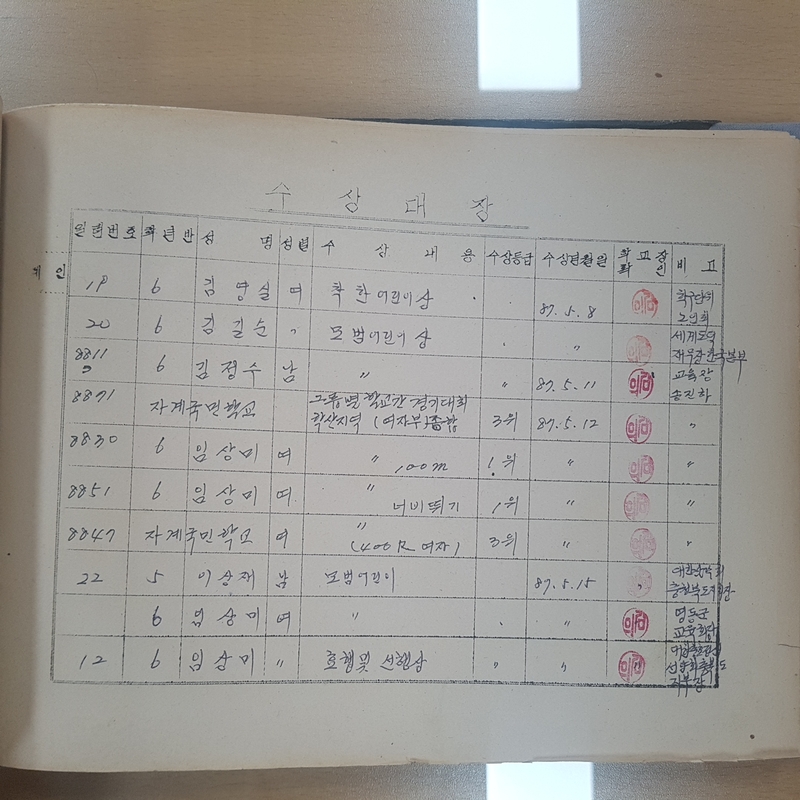 수 상 대 장
일련번호 학년반 성 명 성별 수 상 내 용 수상등급 수상년월일 학교장 확인 비 고
계 인
19 6 김영실 여 착한어린이상 87.5.8 노인회
20 6 김길순 〃 모범어린이상 〃 세계도덕
8811 6 김정수 남 〃 〃 87.5.11 교육장 송진하
8871 자계국민학교 그룹별 학교간 경기대회
학산지역 (여자부)종합 3위 87.5.12 〃
8830 6 임상미 여 〃 100m 1위 〃 〃
8851 6 임상미 여 〃 너비뛰기 1위 〃 〃
8847 자계국민학교 여 〃 (400R 여자) 3위 〃 〃
22 5 이상재 남 모범어린이 87.5.15 충청북도
6 임상미 여 〃 〃 영동군 교육회장
12 6 임상미 〃 효행및 선행상 〃 〃 지부장